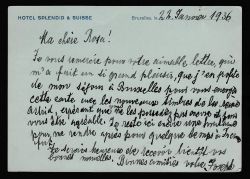 HOTEL SPLENDID & SUISSE
Bruxelles, le 22 Janvier 1936
Ma chère Rosa!
Je vous remercie pour votre aimable lettre, qui
m'a fait un si grand plaisir, que j'en profite
de mon séjour à Bruxelles pour vous envoyer
cette carte avec les nouveaux timbres de la
Astrid, espérant que vous ne les possédez pas encore et
vous être agréable. Je reste ici encore une
pour me rendre après pour quelque temps à
Au plaisir de recevoir bientôt vos
bonnes nouvelles. Bonnes amitiés votre Joseph